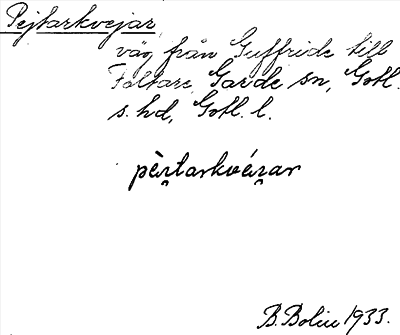 Pejtarkvejar
väg från Guffride till
Foltare, Garde sn, Gotl.
s. hd, Gotl. l.
pèi̯tarkvéi̯ar
B. Bolin 1933.